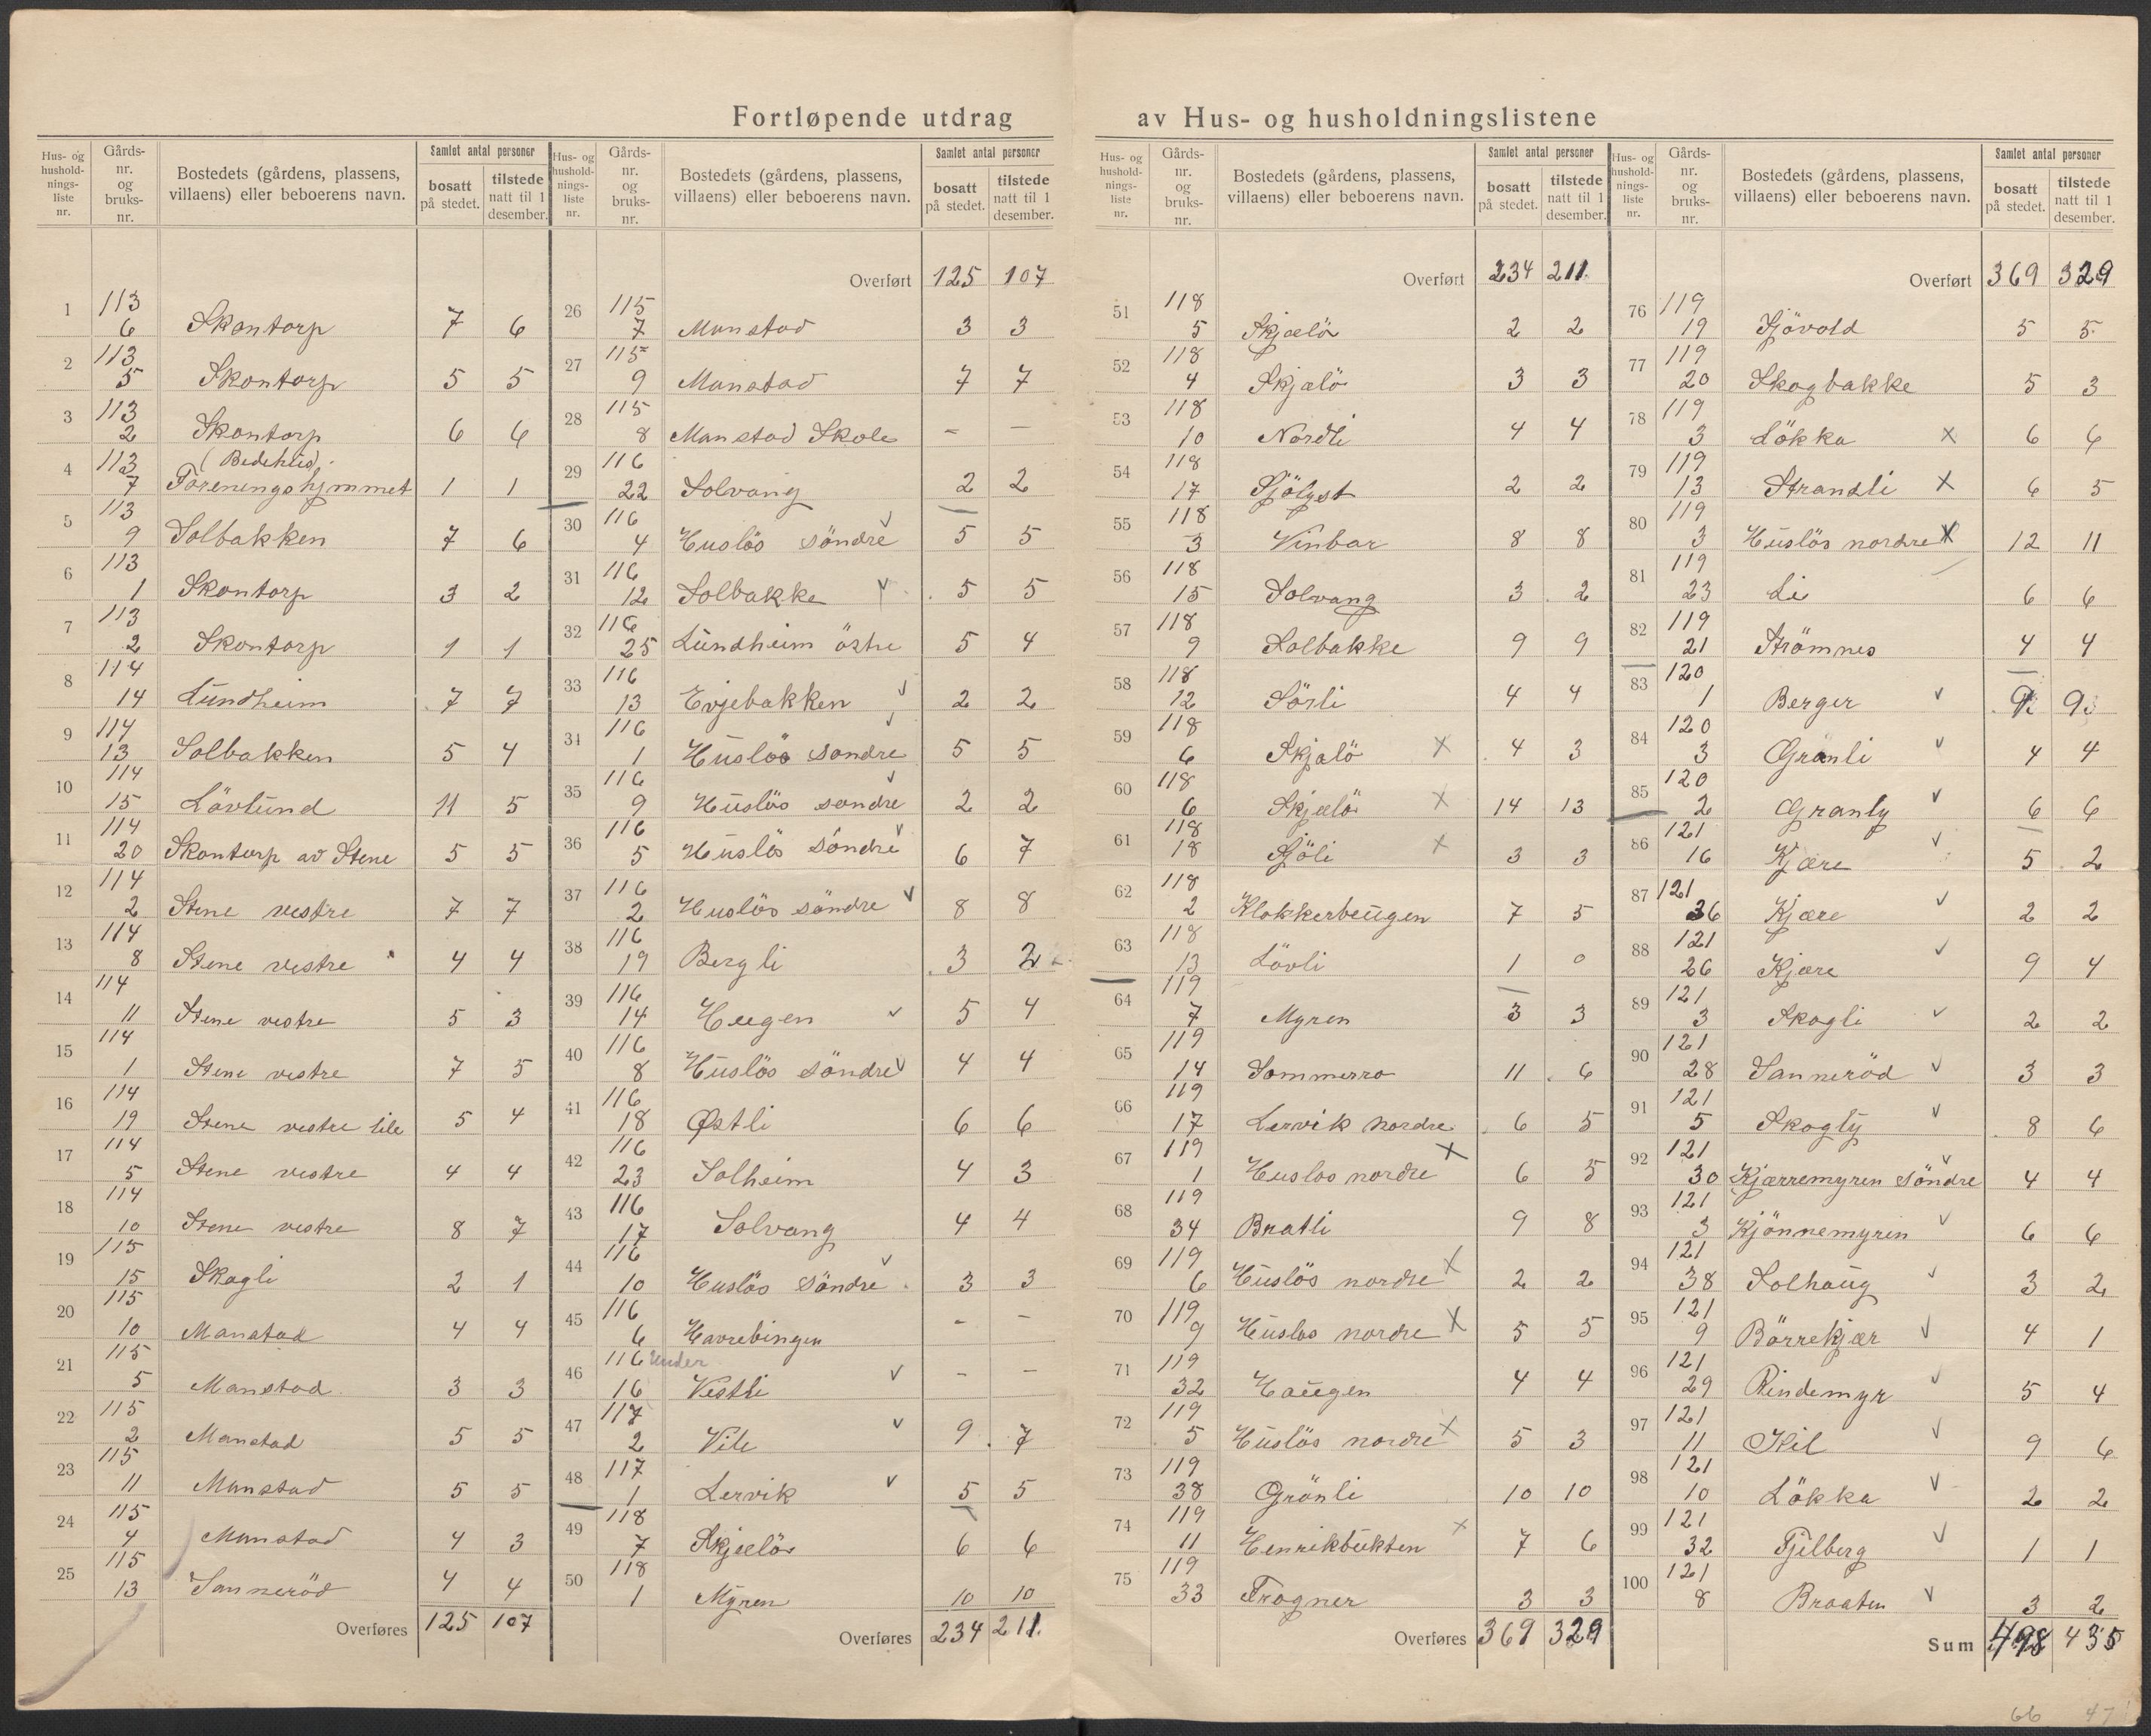 Fortløpende utdrag av Hus- og husholdningslistene
Hus- og hushold-nings-liste nr. Gårds-nr. og bruks-nr. Bostedets (gårdens, plassens, villaens) eller beboerens navn. Samlet antal personer bosatt på stedet. tilstede natt til 1 desember.
1 113 6 Skontorp 7 6
2 113 5 Skontorp 5 5
3 113 2 Skontorp 6 6
4 113 7 (Bedehus) Foreningshjemmet 1 1
5 113 9 Solbakken 7 6
6 113 1 Skontorp 3 2
7 113 2 Skontorp 1 1
8 114 14 Lundheim 7 7
9 114 13 Solbakken 5 4
10 114 15 Lövlund 11 5
11 114 20 Skontorp av Stene 5 5
12 114 2 Stene vestre 7 7
13 114 8 Stene vestre 4 4
14 114 11 Stene vestre 5 3
15 114 1 Stene vestre 7 5
16 114 19 Stene vestre lile 5 4
17 114 5 Stene vestre 4 4
18 114 10 Stene vestre 8 7
19 115 15 Skogli 2 1
20 115 10 Manstad 4 4
21 115 5 Manstad 3 3
22 115 2 Manstad 5 5
23 115 11 Manstad 5 5
24 115 4 Manstad 4 3
25 115 13 Sanneröd 4 4
Overføres 125 107
Hus- og hushold-nings-liste nr. Gårds-nr. og bruks-nr. Bostedets (gårdens, plassens, villaens) eller beboerens navn. Samlet antal personer bosatt på stedet. tilstede natt til 1 desember.
Overført 125 107
26 115 7 Manstad 3 3
27 115 9 Manstad 7 7
28 115 8 Manstad Skole - -
29 116 22 Solvang 2 2
30 116 4 Huslös söndre 5 5
31 116 12 Solbakke 5 5
32 116 25 Lundheim östre 5 4
33 116 13 Evjebakken 2 2
34 116 1 Huslös söndre 5 5
35 116 9 Huslös söndre 2 2
36 116 5 Huslös söndre 6 7
37 116 2 Huslös söndre 8 8
38 116 19 Bergli 3 2
39 116 14 Haugen 5 4
40 116 8 Huslös söndre 4 4
41 116 18 Østli 6 6
42 116 23 Solheim 4 3
43 116 17 Solvang 4 4
44 116 10 Huslös Söndre 3 3
45 116 6 Havrebingen - -
46 116 under 16 Vestli - -
47 117 2 Vile 9 7
48 117 1 Lervik 5 5
49 118 7 Skjælö 6 6
50 118 1 Myren 10 10
Overføres 234 211
Hus- og hushold-nings-liste nr. Gårds-nr. og bruks-nr. Bostedets (gårdens, plassens, villaens) eller beboerens navn. Samlet antal personer bosatt på stedet. tilstede natt til 1 desember.
Overført 234 211
51 118 5 Skjælö 2 2
52 118 4 Skjælö 3 3
53 118 10 Nordli 4 4
54 118 17 Sjölyst 2 2
55 118 3 Vinbar 8 8
56 118 15 Solvang 3 2
57 118 9 Solbakke 9 9
58 118 12 Sörli 4 4
59 118 6 Skjælö X 4 3
60 118 6 Skjælö X 14 13
61 118 18 Sjöli X 3 3
62 118 2 Klokkerhaugen 7 5
63 118 13 Lövli 1 0
64 119 7 Myren 3 3
65 119 14 Sommerro 11 6
66 119 17 Lervik nordre 6 5
67 119 1 Huslös nordre X 6 5
68 119 34 Bratli 9 8
69 119 6 Huslös nordre X 2 2
70 119 9 Huslös nordre X 5 5
71 119 32 Haugen 4 4
72 119 5 Huslös nordre X 5 3
73 119 38 Grönli 10 10
74 119 11 Henrikbukten X 7 6
75 119 33 Frogner 3 3
Overføres 369 329
Hus- og hushold-nings-liste nr. Gårds-nr. og bruks-nr. Bostedets (gårdens, plassens, villaens) eller beboerens navn. Samlet antal personer bosatt på stedet. tilstede natt til 1 desember.
Overført 369 329
76 119 19 Sjövold 5 5
77 119 20 Skogbakke 5 3
78 119 3 Lökka X 6 6
79 119 13 Strandli X 6 5
80 119 3 Huslös nordre X 12 11
81 119 23 Li 6 6
82 119 21 Strömnes 4 4
83 120 1 Berger 9 9
84 120 3 Granli 4 4
85 120 2 Granly 6 6
86 121 16 Kjære 5 2
87 121 36 Kjære 2 2
88 121 26 Kjære 9 4
89 121 3 Skogli 2 2
90 121 28 Sanneröd 3 3
91 121 5 Skogly 8 6
92 121 30 Kjærremyren söndre 4 4
93 121 3 Kjönnemyren 6 6
94 121 38 Solhaug 3 2
95 121 9 Börrekjær 4 1
96 121 29 Rindemyr 5 4
97 121 11 Kil 9 6
98 121 10 Lökka 2 2
99 121 32 Fjelberg 1 1
100 121 8 Braaten 3 2
Sum 498 435
66 47